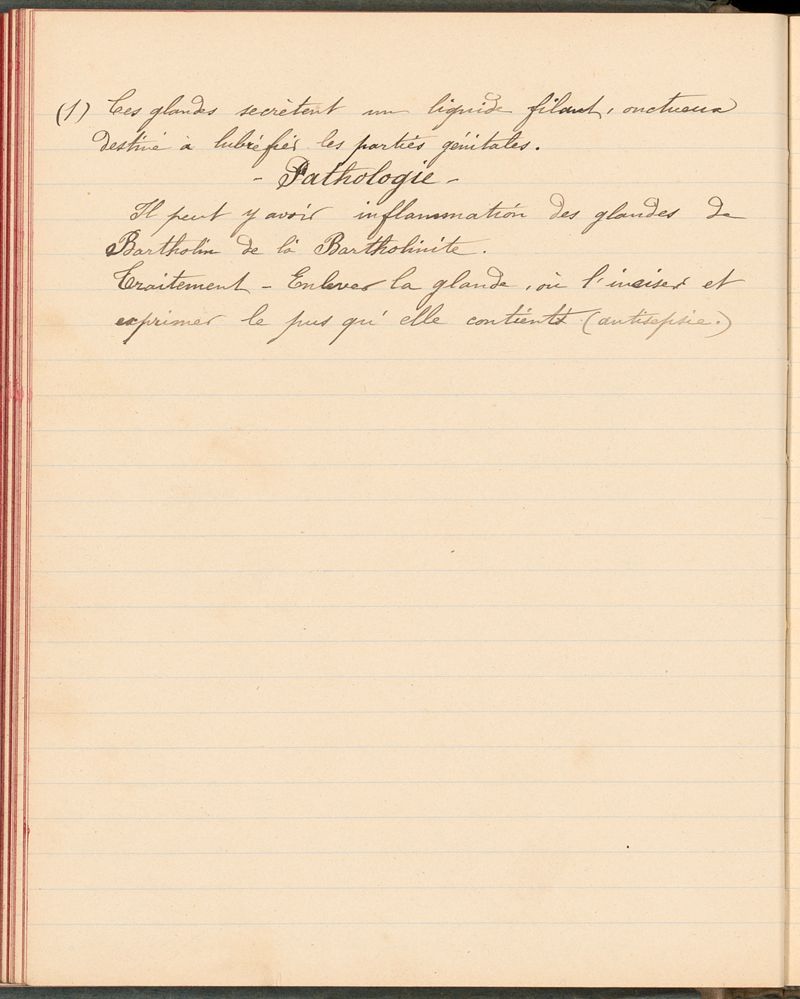 (1) Ces glandes secrètent un liquide filant, onctueux
destiné à lubréfier les parties génitales.
- Pathologie -
Il peut y avoir inflammation des glandes de
Bartholin de là Bartholinite.
Traitement - Enlever la glande, où l'inciser et
exprimer le pus qu'elle contient (antisepsie.)